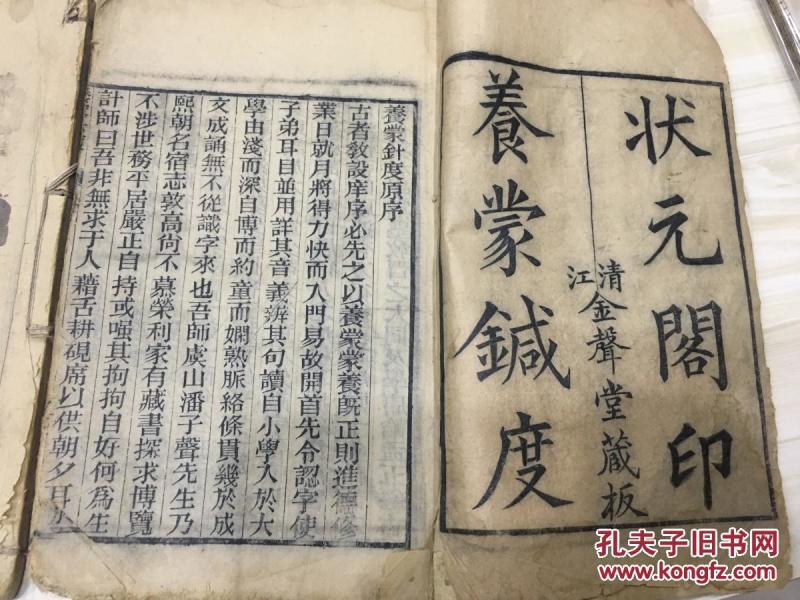 状元閣印
清江
金聲堂蔵板
養蒙鍼度
養蒙針度原序
古者敎設庠序必先之以養蒙蒙養旣正則進德修
業日就月將得力快而入門易故開首先令認字使
子弟耳目並用詳其音義辨其句讀自小學入於大
學由淺而深自博而約童而嫻熟脈絡條貫幾於成
文成誦無不從識字來也吾師虞山潘子聲先生乃
熙朝名宿志敦高尙不慕榮利家有藏書探求博覽
不涉世務平居嚴正自持或嗤其拘拘自好何爲生
計師曰吾非無求于人藉舌耕硯席以供朝夕耳
孔夫子旧书网
www.kongfz.com